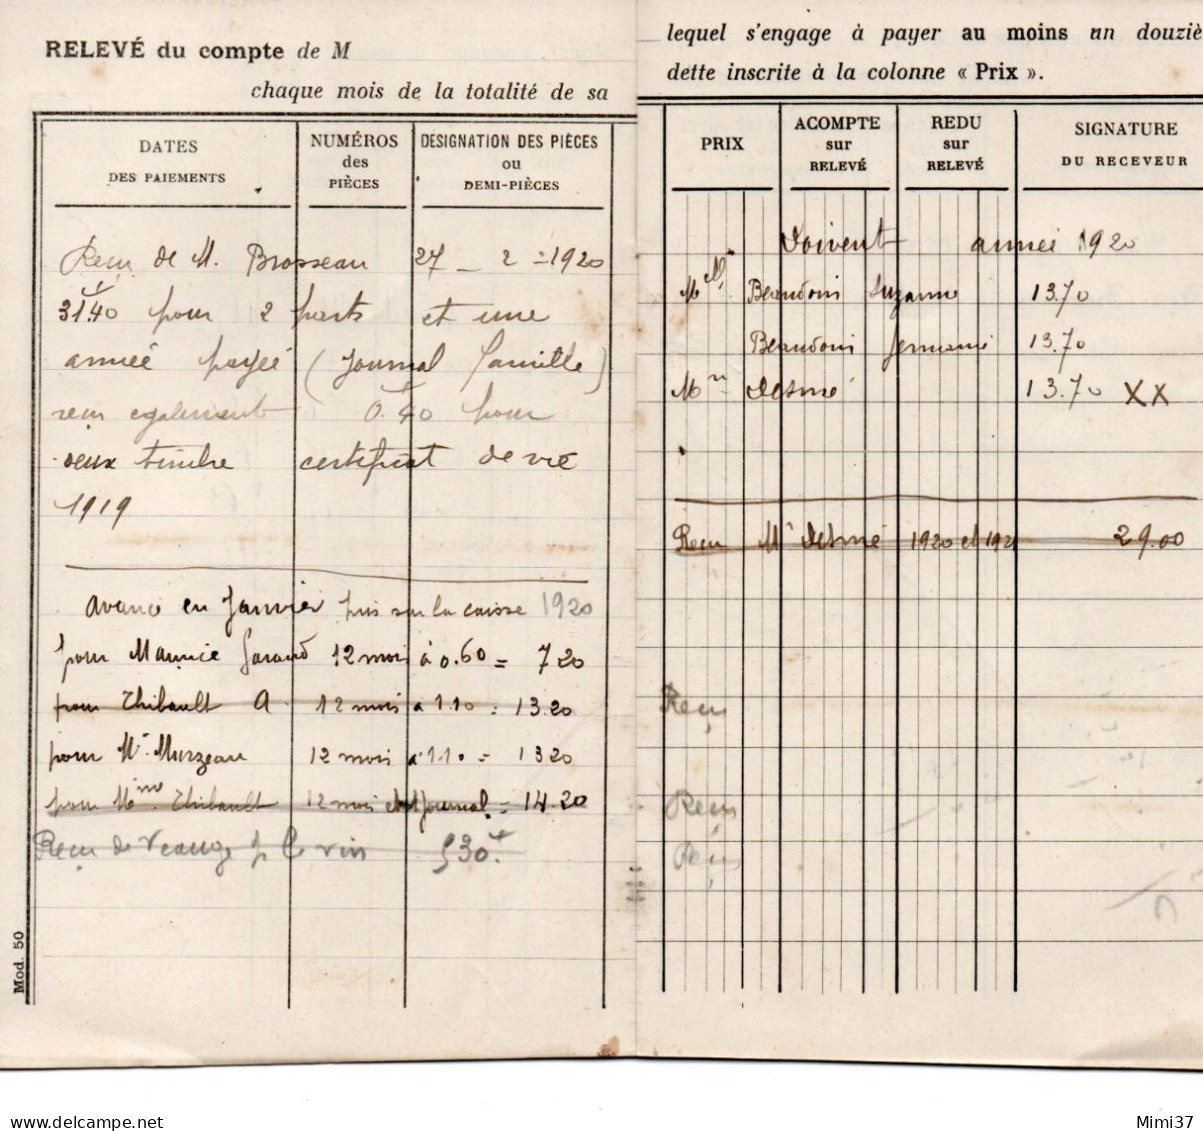 RELEVÉ du compte de M
chaque mois de la totalité de sa
DATES
DES PAIEMENTS
NUMÉROS
des
PIÈCES
DÉSIGNATION DES PIÈCES
ou
DEMI-PIÈCES
Reçu de M. Brosseau 27 - 2 - 1920
31f40 pour 2 parts et une
année payée (Journal famille)
reçu egalement 0f40 pour
deux timbre certificat de vie
1919
avance en Janvier pris sur la caisse 1920
pour Maurice Garand 12 mois à 0.60 = 720
pour Thibault A. 12 mois à 1.10 = 13.20
pour Mr Murzeau 12 mois à 1.10 = 1320
pour Mme Thibault 12 mois et Journal = 14.20
Reçu de le vin 530f
Mod. 50
lequel s'engage à payer au moins un douziè
dette inscrite à la colonne « Prix ».
PRIX
ACOMPTE
sur
RELEVÉ
REDU
sur
RELEVÉ
SIGNATURE
DU RECEVEUR
Doivent année 1920
Mlle Beaudoin Suzanne 13.70
Beaudoin Germaine 13.70
Mr Desmé 13.70 XX
Reçu Mr Desmé 1920 et 1921 29.00
Reçu
Reçu
Reçu
Mimi37